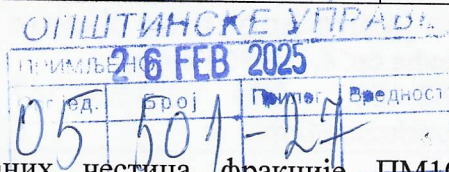 ОПШТИНСКЕ УПРАВЕ
ПРИМЉЕНО 26 FEB 2025
јед. Број Прилог Вредност
05 501-27
честица фракције ПМ10